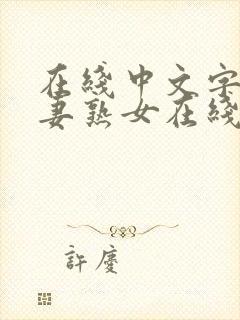 在綫中文字
妻熟女在綫
許慶